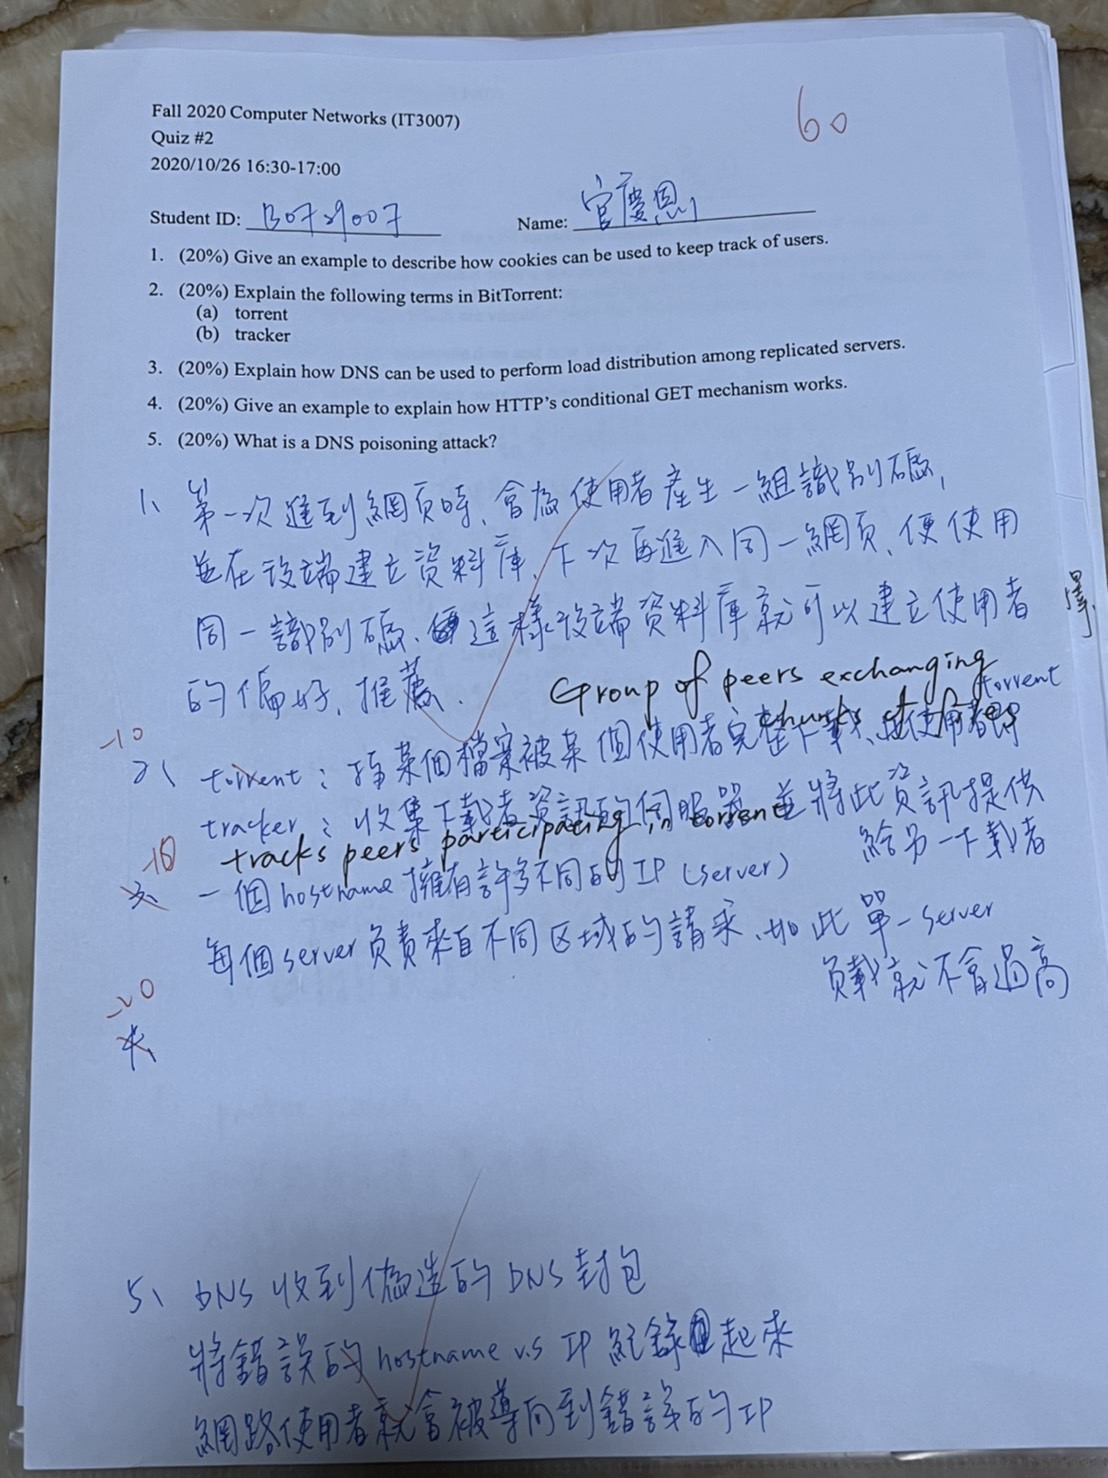 Fall 2020 Computer Networks (IT3007)
60
Quiz #2
2020/10/26 16:30-17:00
Student ID: B0729007 Name: 官慶恩
1. (20%) Give an example to describe how cookies can be used to keep track of users.
2. (20%) Explain the following terms in BitTorrent:
(a) torrent
(b) tracker
3. (20%) Explain how DNS can be used to perform load distribution among replicated servers.
4. (20%) Give an example to explain how HTTP's conditional GET mechanism works.
5. (20%) What is a DNS poisoning attack?
1、第一次進到網頁時、會為使用者產生一組識別碼,
並在後端建立資料庫、下次再進入同一網頁、便使用
同一識別碼、這樣後端資料庫就可以建立使用者
的偏好、推薦.
Group of peers exchanging
chunks of files
-10
2、torrent: 指某個檔案被某個使用者完整下載、使用者即
torrent
tracker: 收集下載者資訊的伺服器並將此資訊提供
給另一下載者
tracks peers participating in torrent
-10
3、一個hostname擁有許多不同的IP (server)
每個server负責來自不同区域的請求、如此單一server
負載就不會過高
-20
4、
5、DNS收到偽造的DNS封包
將錯誤的hostname v.s IP紀錄起來
網路使用者就會被導向到錯誤的IP